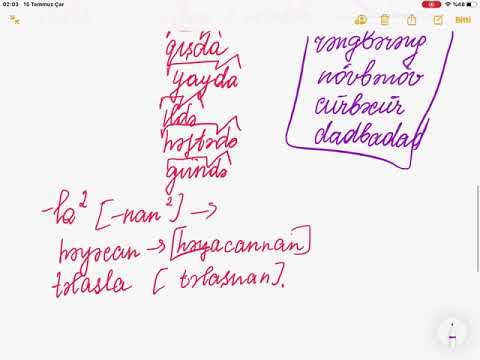 02:03 15 Temmuz Çar
%48
Bitti
qışda
yayda
ildə
həftədə
gündə
rəngbərəng
növbənöv
cürbəcür
dadbadad
-la² [-nan²] →
həyəcan → [həyacannan]
təlasla [təlasnan].